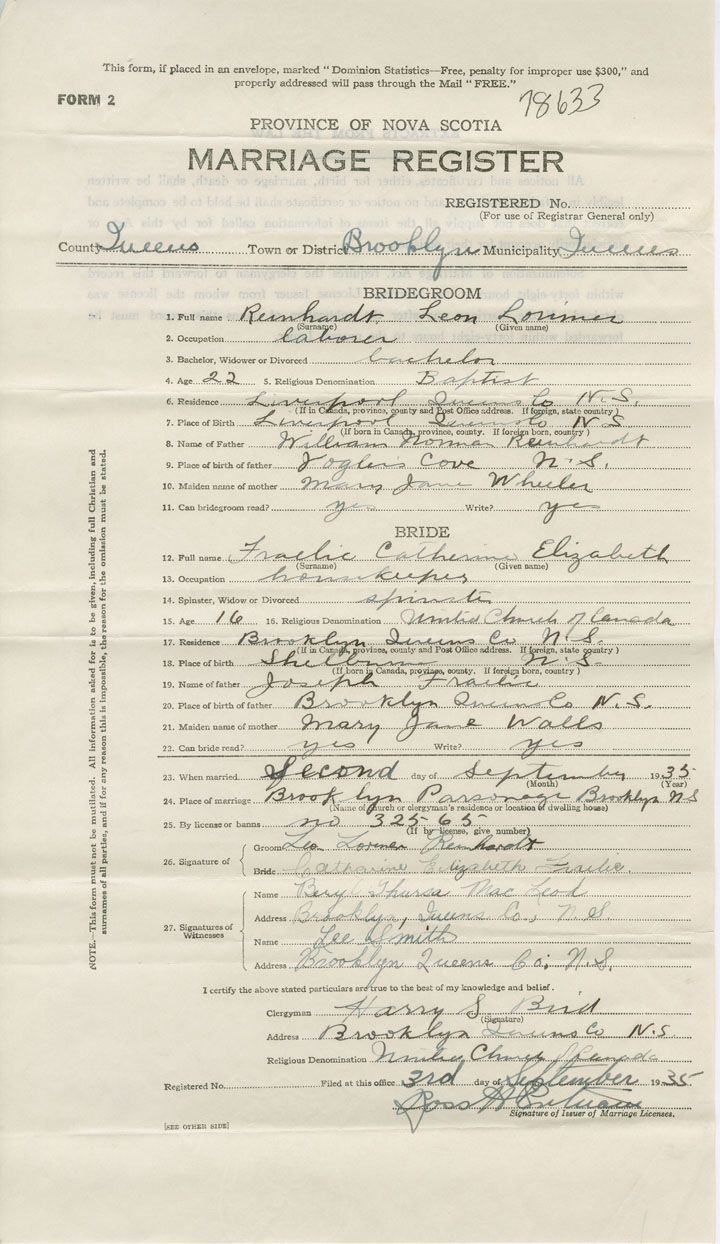 This form, if placed in an envelope, marked "Dominion Statistics—Free, penalty for improper use $300," and
properly addressed will pass through the Mail "FREE."
FORM 2
78633
PROVINCE OF NOVA SCOTIA
MARRIAGE REGISTER
REGISTERED No.
(For use of Registrar General only)
County Queens Town or District Brooklyn Municipality Queens
BRIDEGROOM
1. Full name Reinhardt Leon Lorimer
(Surname) (Given name)
2. Occupation laborer
3. Bachelor, Widower or Divorced bachelor
4. Age 22 5. Religious Denomination Baptist
6. Residence Liverpool Queens Co N.S.
(If in Canada, province, county and Post Office address. If foreign, state country)
7. Place of Birth Liverpool Queens Co N S
(If born in Canada, province, county. If foreign born, country)
8. Name of Father William Norman Reinhardt
9. Place of birth of father Voglers Cove N.S.
10. Maiden name of mother Mary Jane Wheeler
11. Can bridegroom read? yes Write? yes
BRIDE
12. Full name Fraelic Catherine Elizabeth
(Surname) (Given name)
13. Occupation housekeeper
14. Spinster, Widow or Divorced spinster
15. Age 16 16. Religious Denomination United Church of Canada
17. Residence Brooklyn Queens Co N.S.
(If in Canada, province, county and Post Office address. If foreign, state country)
18. Place of birth Shelburne N.S.
(If born in Canada, province, county. If foreign born, country)
19. Name of father Joseph Fraelic
20. Place of birth of father Brooklyn Queens Co N.S.
21. Maiden name of mother Mary Jane Walls
22. Can bride read? yes Write? yes
23. When married Second day of September 1935
(Month) (Year)
24. Place of marriage Brooklyn Parsonage Brooklyn N S
(Name of church or clergyman's residence or location of dwelling house)
25. By license or banns no 32565
(If by license, give number)
26. Signature of
Groom Leo Lorimer Reinhardt
Bride Catharine Elizabeth Fraelic
27. Signatures of Witnesses
Name Beryl Thursa Mac Leod
Address Brooklyn, Queens Co., N.S
Name Lee Smith
Address Brooklyn Queens Co; N.S.
I certify the above stated particulars are true to the best of my knowledge and belief.
Clergyman Harry S. Bird
(Signature)
Address Brooklyn Queens Co N.S.
Religious Denomination United Church of Canada
Registered No. Filed at this office 3rd day of September 1935
Ross
Signature of Issuer of Marriage Licenses.
[SEE OTHER SIDE]
NOTE.—This form must not be mutilated. All information asked for is to be given, including full Christian and
surnames of all parties, and if for any reason this is impossible, the reason for the omission must be stated.